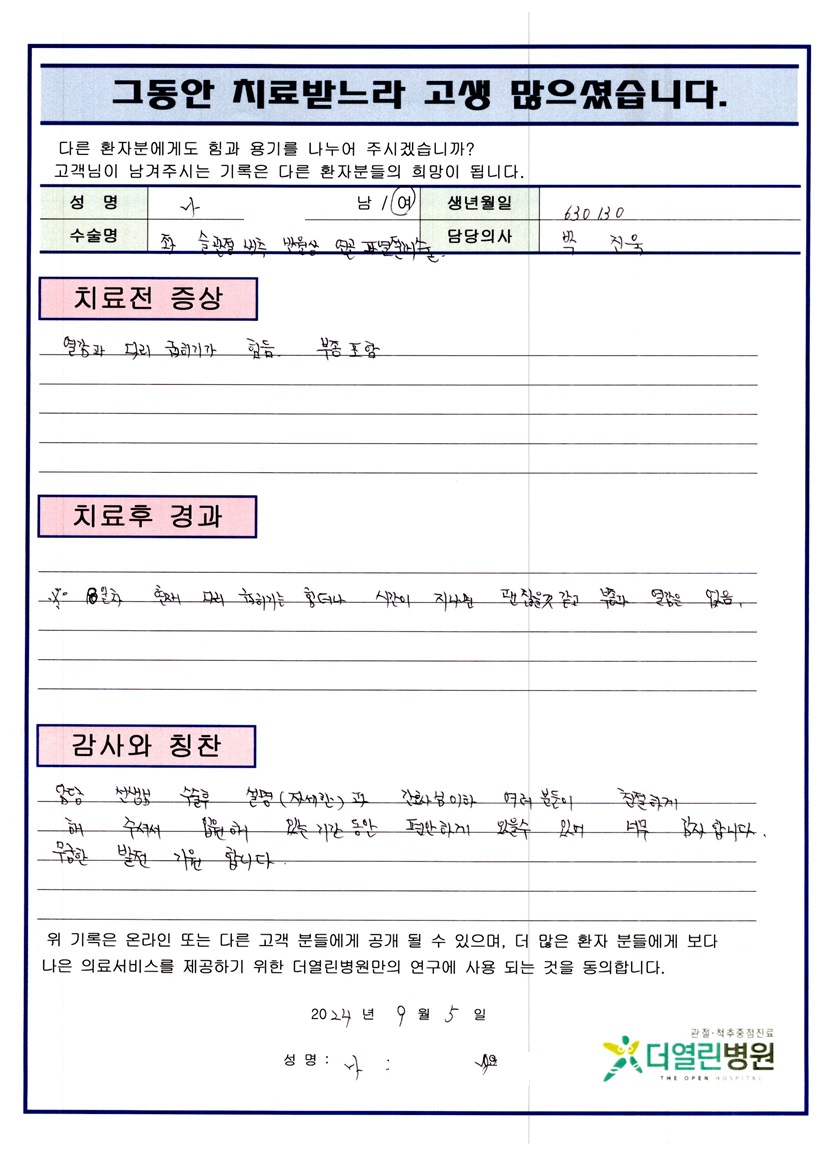 그동안 치료받느라 고생 많으셨습니다.
다른 환자분에게도 힘과 용기를 나누어 주시겠습니까?
고객님이 남겨주시는 기록은 다른 환자분들의 희망이 됩니다.
성 명 남 / 여 생년월일 630130
수술명 좌 슬관절 내측 반월상 연골 담당의사 박 진욱
치료전 증상
열감과 다리 굽히기가 힘듬. 부종 포함
치료후 경과
8일차 현재 다리 굽히기는 시간이 지나면 괜찮을것 같고 부종과 열감은 없음.
감사와 칭찬
담당 선생님 수술후 설명(자세한)과 간호사님이하 여러분들이 친절하게
해 주셔서 입원해 있는 기간 동안 편안하게 있을수 있어 너무 감사 합니다.
무궁한 발전 기원 합니다.
위 기록은 온라인 또는 다른 고객 분들에게 공개 될 수 있으며, 더 많은 환자 분들에게 보다
나은 의료서비스를 제공하기 위한 더열린병원만의 연구에 사용 되는 것을 동의합니다.
2024 년 9 월 5 일
성 명 :
관절·척추중점진료
더열린병원
THE OPEN HOSPITAL